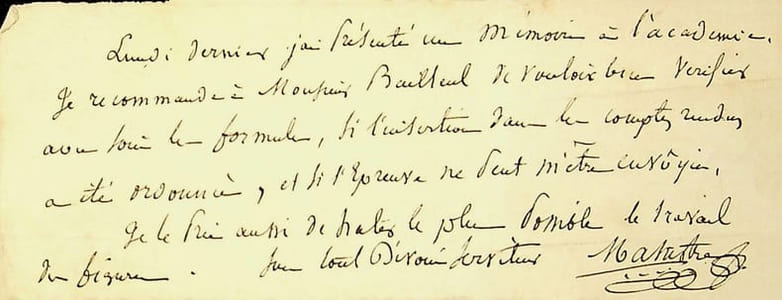 Lundi dernier j'ai Présenté un Mémoire à l'académie.
Je recommande à Monsieur Bailleul de vouloir bien Verifier
avec soin les formules, si l'insertion dans les comptes rendus
a été ordonnée, et si l'Epreuve ne peut m'être envoyée.
Je le Prie aussi de hater le plus Possible le travail
des figures. Son tout Dévoué Serviteur